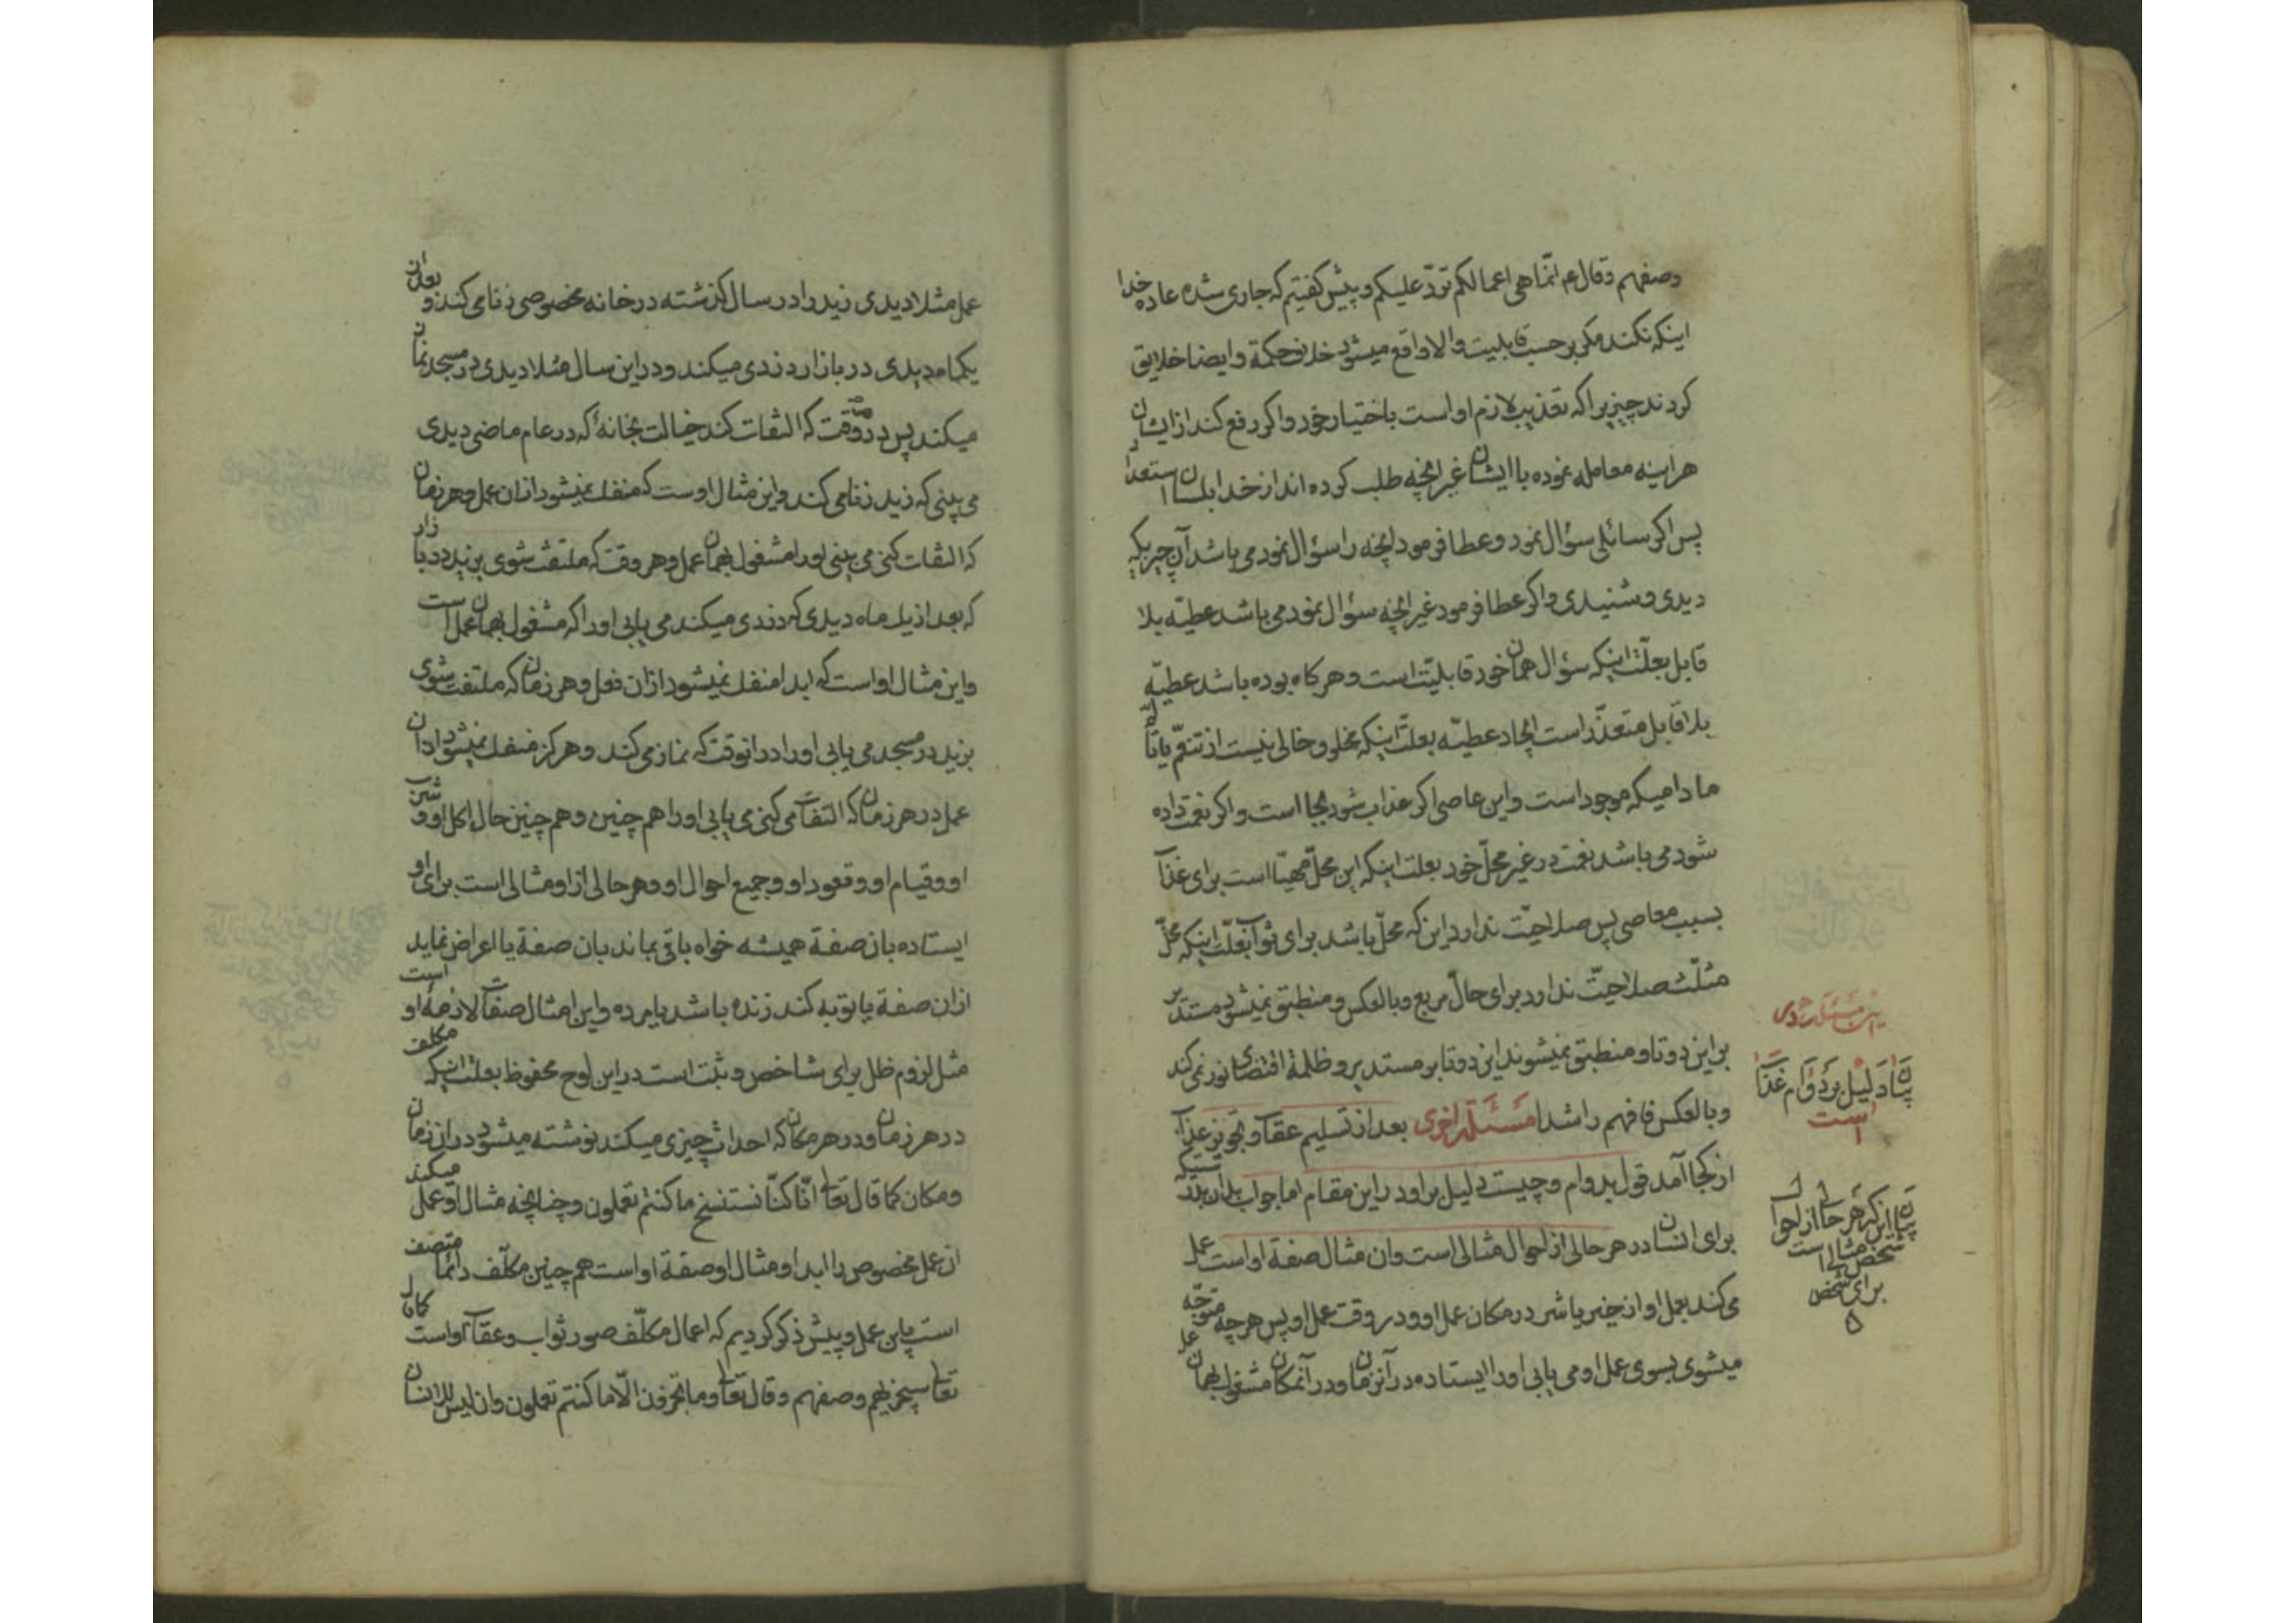 وصفهم وقال ع م انّما هی اعمالکم تردّ علیکم و پیش کفتیم که جاری شده عاده خدا
اینکه نکند مکر بر حسب قابلیت والا واقع میشود خلاف حکمة وایضا خلایق
کردند چیزیرا که تعذیب لازم او است باختیار خود واکر رفع کند از ایشان
هراینه معامله نموده با ایشان غیر انچه طلب کرده اند از خدا بلسان استعداد
پس اکر سائلی سؤال نمود وعطا فرمود انچه را سؤال نمود می باشد آن چیزیکه
دیدی وشنیدی واکر عطا فرمود غیر انچه سؤال نمود می باشد عطیّه بلا
قابل بعلّت اینکه سؤال همان خود قابلیّت است وهر کاه بوده باشد عطیّه
بلا قابل متعذّر است ایجاد عطیّه بعلّت اینکه مخلوق خالی نیست از تنعّم یا تألّم
مادامیکه موجود است واین عاصی اکر عذاب شود بجا است واکر نعمت داده
شود می باشد نعمت در غیر محلّ خود بعلت اینکه این محلّ مهیّا است برای عذاب
بسبب معاصی پس صلاحیّت ندارد این که محلّ باشد برای ثواب بعلّت اینکه محلّ
مثلّث صلاحیّت ندارد برای حالّ مربع وبالعکس ومنطبق نمیشود مستدیر
بر این دو تا ومنطبق نمیشوند این دو تا بر مستدیر و ظلمة اقتضای نور نمی کند
وبالعکس فافهم راشدا مسئلة اخری بعد از تسلیم عقاب وتجویز عذاب
از کجا آمد قول بدوام وچیست دلیل بر او در این مقام اما جواب بدان بدرستیکه
برای انسان در هر حالی از احوال مثالی است وان مثال صفة او است عمل
می کند بعمل او از خیر یا شر در مکان عمل او ودر وقت عمل او پس هر چه متوجّه
میشوی بسوی عمل او می یابی او را ایستاده در آنزمان ودر آنمکان مشغول بهمان عمل
بیان دلیل بر دوام عذاب
است
بیان این که هر حالی از احوال
شخص مثالی است
برای شخص
عمل مثلا دیدی زید را در سال کذشته در خانه مخصوصی زنا می کند و بعد از ان
یکماه دیدی در بازار دزدی میکند ودر این سال مثلا دیدی در مسجد نماز
میکند پس در هر وقت که التفات کند خیالت بخانۀ که در عام ماضی دیدی
می بینی که زید زنا می کند واین مثال اوست که منفک نمیشود از ان عمل وهر زمان
که التفات کنی می بینی او را مشغول بهمان عمل وهر وقت که ملتفت شوی بزید در بازار
که بعد از یک ماه دیدی که دزدی میکند می یابی او را که مشغول بهمان عمل است
واین مثال او است که ابدا منفک نمیشود از ان فعل وهر زمان که ملتفت شوی
بزید در مسجد می یابی او را در انوقت که نماز می کند وهرکز منفک نمیشود از ان
عمل در هر زمان که التفات می کنی می یابی او را هم چنین وهم چنین حال اکل او و شرب
او وقیام او وقعود او وجمیع احوال او وهر حالی از او مثالی است برای او
ایستاده بان صفة همیشه خواه باقی بماند بان صفة یا اعراض نماید
ازان صفة یا توبه کند زنده باشد یا مرده واین امثال صفات لازمۀ او است
مثل لزوم ظل برای شاخص وثبت است در این لوح محفوظ بعلت اینکه مکلف
در هر زمان ودر هر مکان که احداث چیزی میکند نوشته میشود در ان زمان
ومکان کما قال تعالی انّا کنّا نستنسخ ما کنتم تعملون وچنانچه مثال او عمل میکند
ان عمل مخصوص را ابدا ومثال او صفة او است هم چنین مکلّف دائما متصف
است باین عمل و پیش ذکر کردیم که اعمال مکلّف صور ثواب وعقاب او است کما قال
تعالی سیجزیهم وصفهم وقال تعالی وما تجزون الّا ما کنتم تعملون وان لیس للانسان